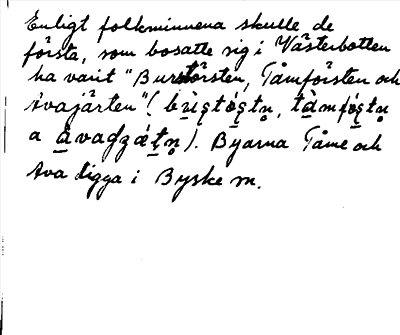 Enligt folkminnena skulle de
första, som bosatte sig i Västerbotten
ha varit "Burstörsten, Tåmförsten och
Avajärten"
a
). Byarna Tåme och
Ava ligga i Byske m.